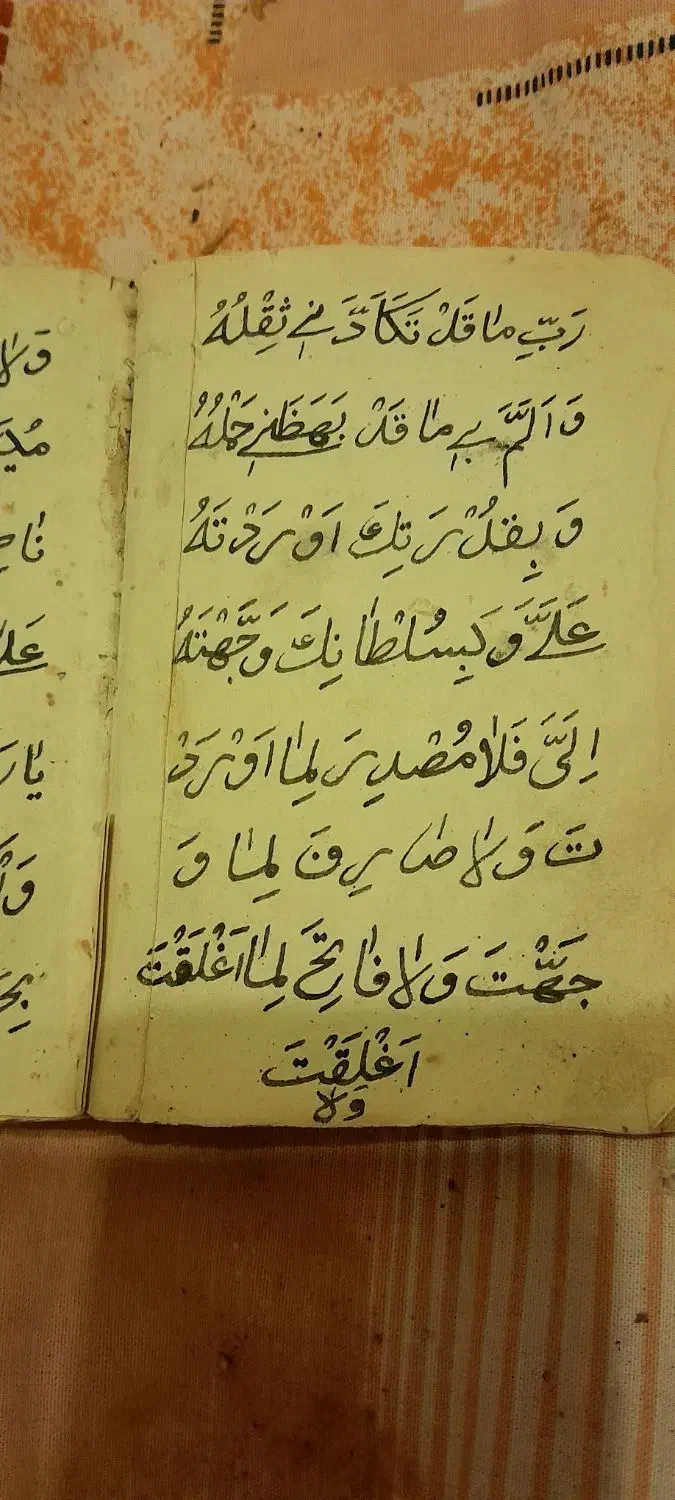 رَبِّ مٰا قَدْ تَكَاَدَّنِے ثِقْلُهُ
وَ اَلَمَّ بِے مٰا قَدْ بَهَظَنِے حَمْلُهُ
وَ بِقُدْرَتِكَ اَوْرَدْتَهُ
عَلَےَّ وَ بِسُلْطٰانِكَ وَجَّهْتَهُ
اِلَیَّ فَلاٰ مُصْدِرَ لِمٰا اَوْرَدْ
تَ وَ لاٰ صٰارِفَ لِمٰا وَ
جَهَّتَ وَ لاٰ فٰاتِحَ لِمٰا اَغْلَقْتَ
اَغْلَقْتَ
وَلاٰ
وَلاٰ
عَلَ
یٰارَ